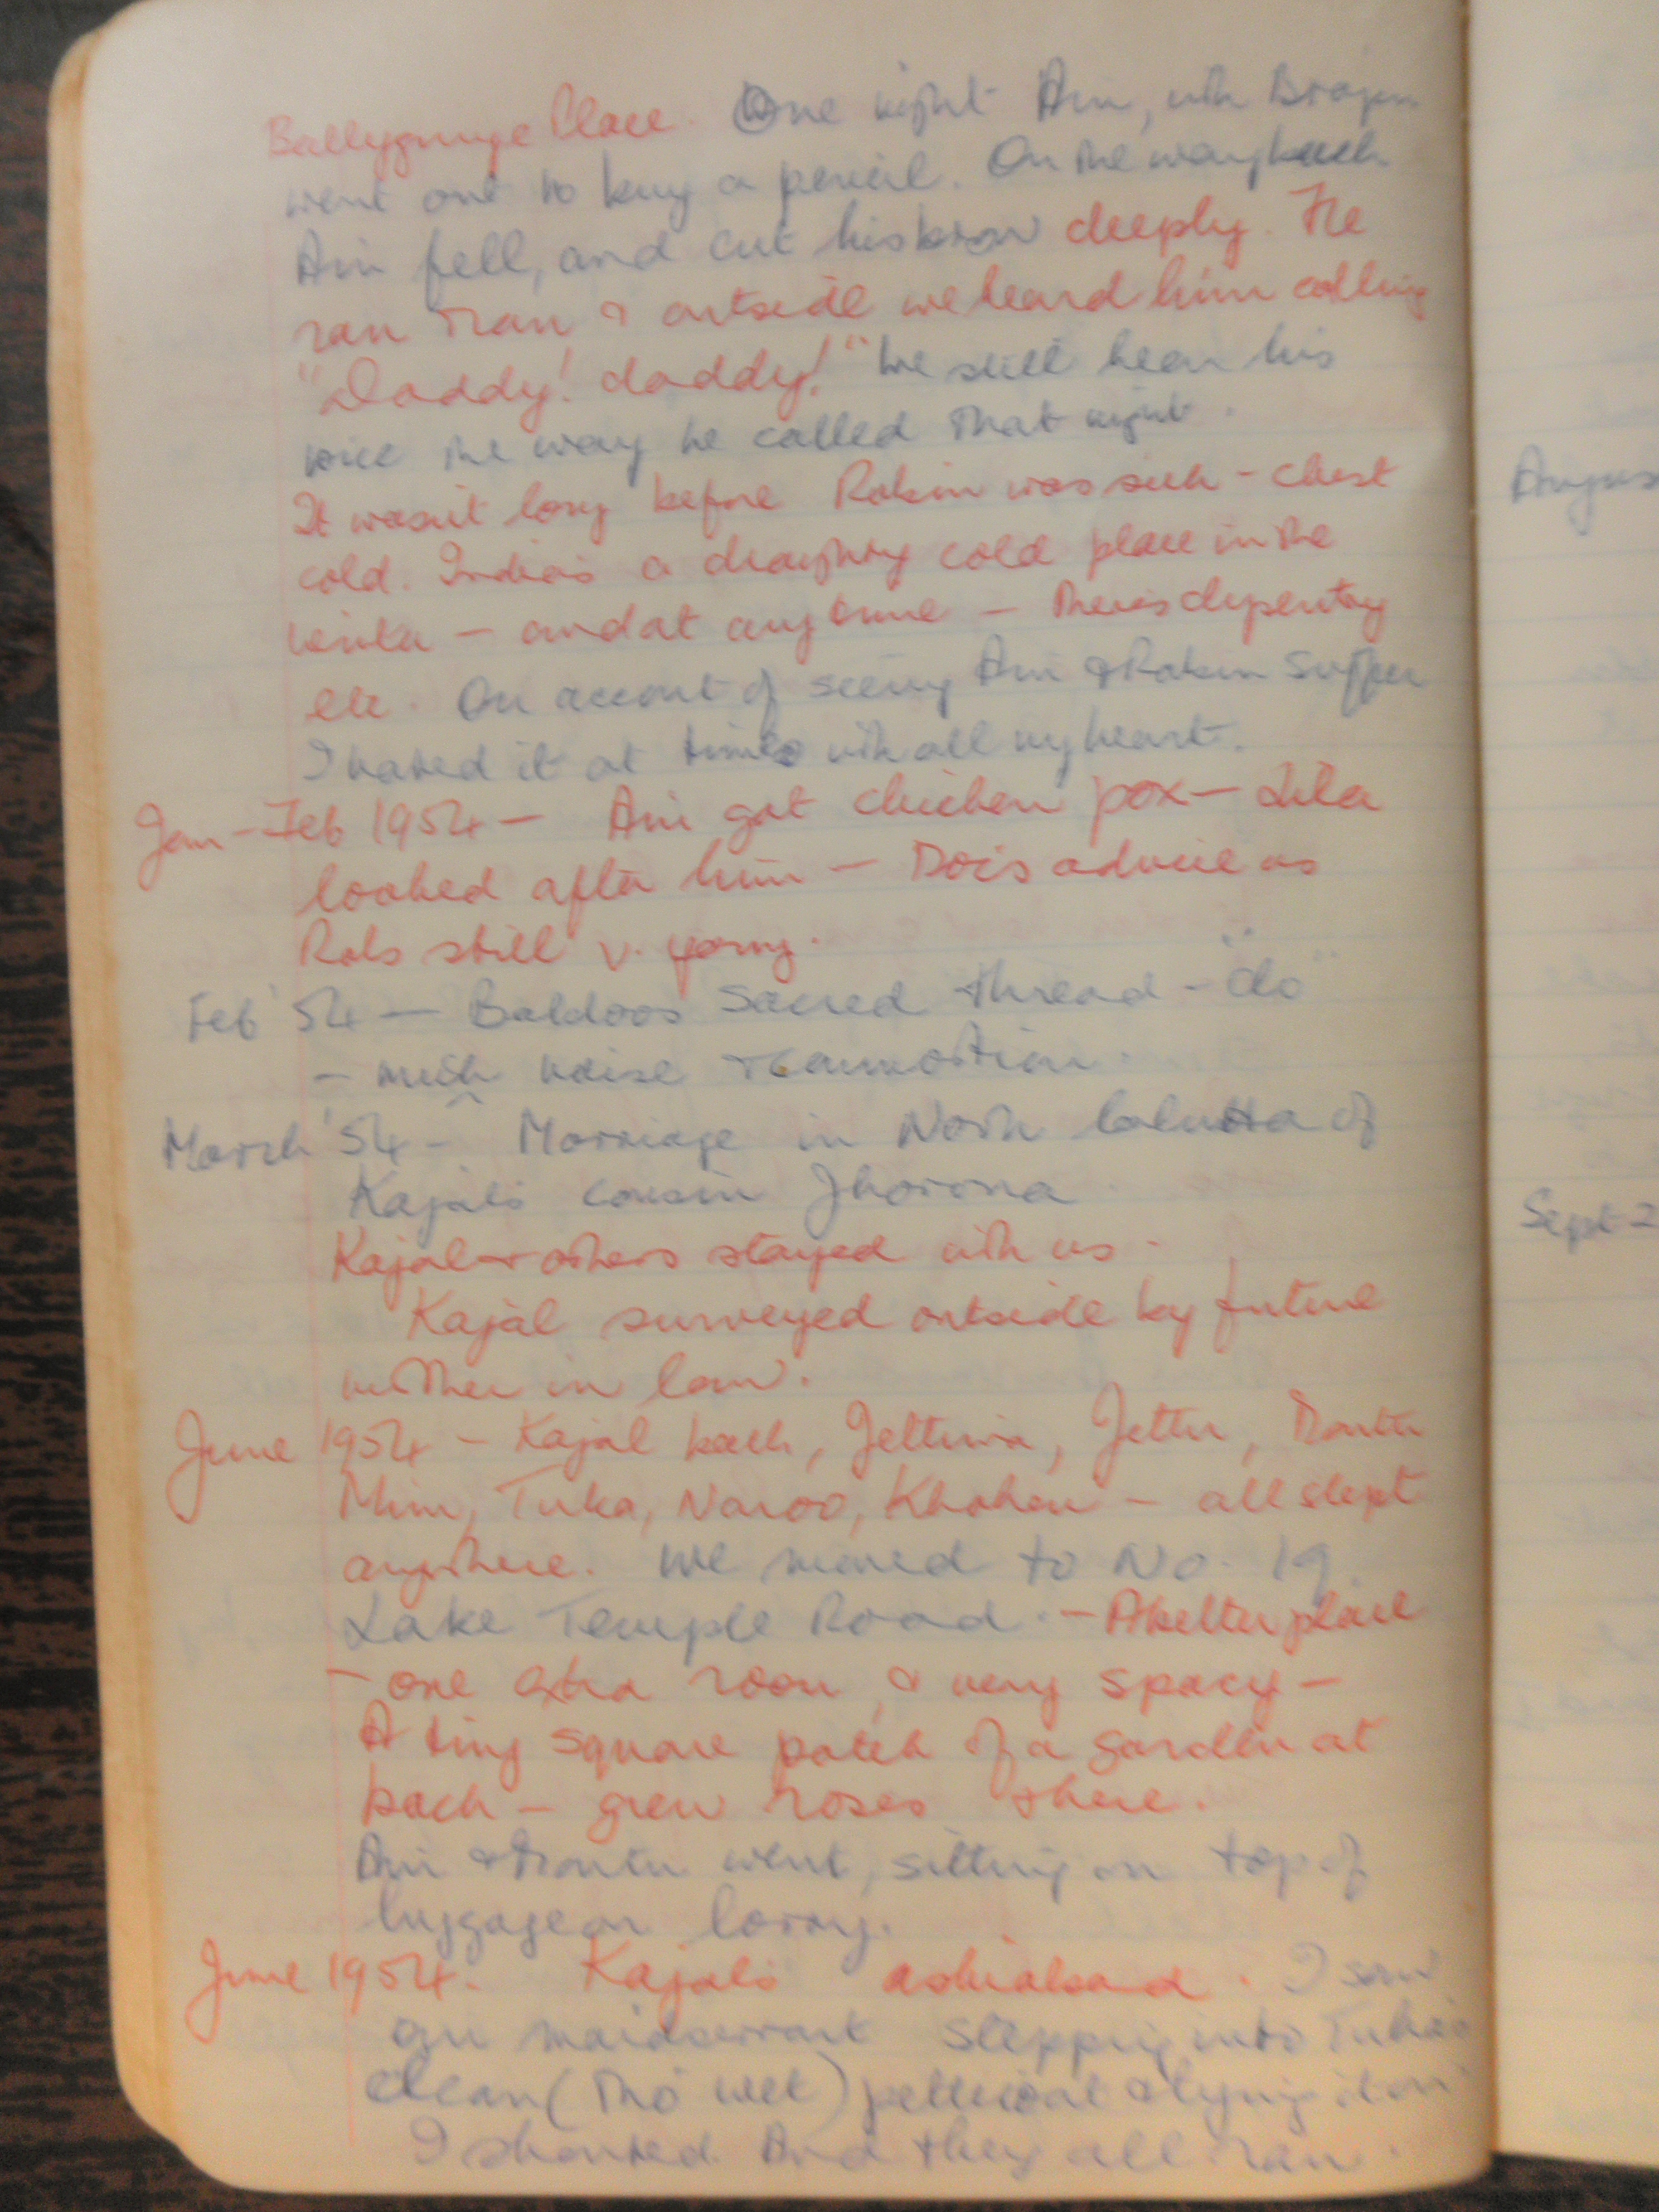 Ballygunge Place. One night Ain, with Brojen
went out to buy a pencil. On the way back
Ain fell, and cut his brow deeply. He
ran & ran & outside we heard him calling
"Daddy! daddy!" We still hear his
voice the way he called that night.
It wasn't long before Robin was sick - chest
cold. India's a draughty cold place in the
winter - and at any time - there's dysentry
etc. On account of seeing Ain & Robin suffer
I hated it at times with all my heart.
Jan - Feb 1954 - Ain got chicken pox - Lila
looked after him - Doc's advice as
Robs still v. young.
Feb '54 - Baldoos Sacred thread - "do"
- much noise & commotion.
March '54 - Marriage in North Calcutta of
Kajal's cousin Jhorona
Kajal & others stayed with us.
Kajal surveyed outside by future
mother in law.
June 1954 - Kajal back, Jettima, Jettu,
Mim, Tuka, Naroo, Khokan - all slept
anywhere. We moved to No. 19
Lake Temple Road. - A better place
- one extra room & very spacy -
A tiny square patch of a garden at
back - grew roses there.
Ain & went, sitting on top of
luggage on lorry.
June 1954. Kajal's I saw
our maidservant stepping into Tuka's
clean (tho' wet) petticoat & tying it on
I shouted And they all ran.
Augus
Sept 2